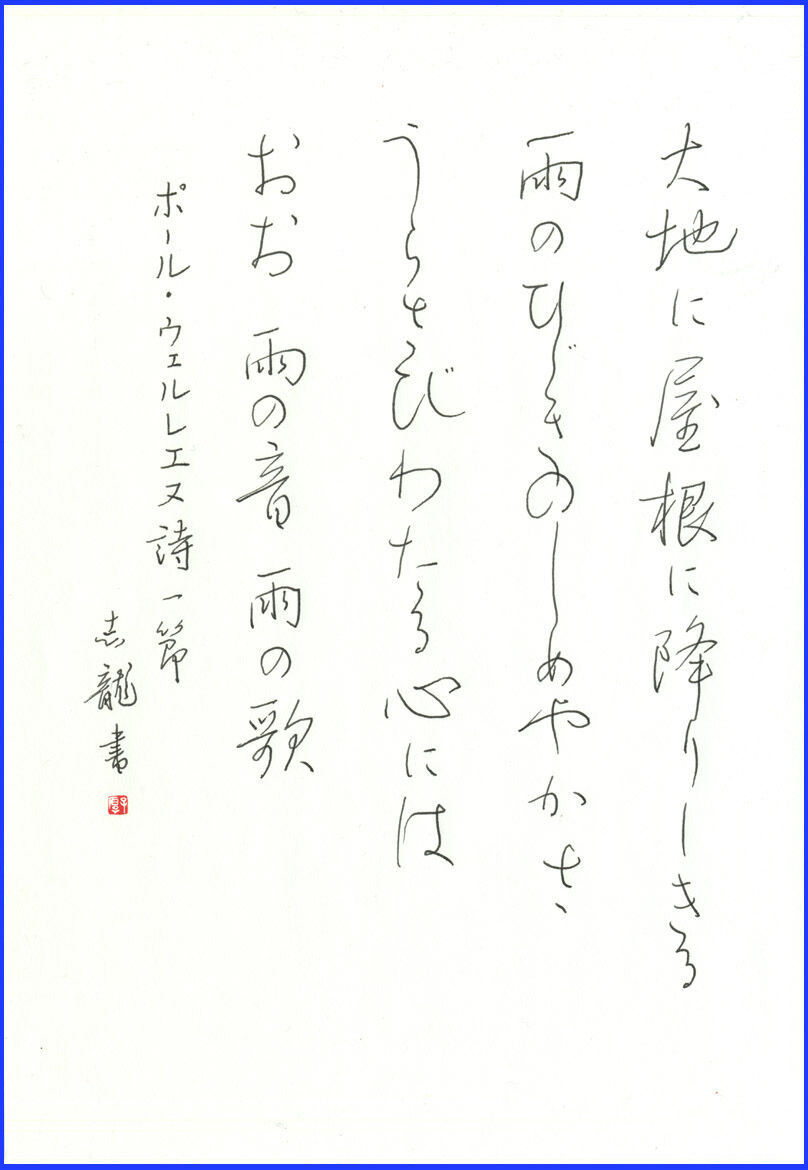 大地に屋根に降りしきる
雨のひびきのしめやかさ、
うらさびわたる心には
おお 雨の音 雨の歌
ポール・ウェルレエヌ詩一節
志龍書